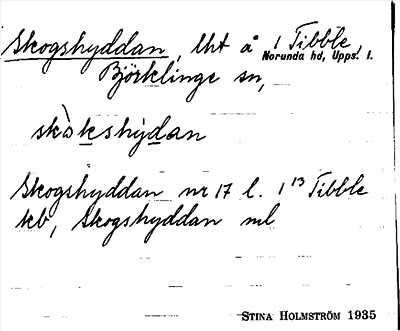 Skogshyddan, lht å 1 Tibble,
Norunda hd, Upps. l.
Björklinge sn,
skò̀keshỳdan
Skogshyddan nr 17 l. 1¹³ Tibble
kb, Skogshyddan ml
STINA HOLMSTRÖM 1935